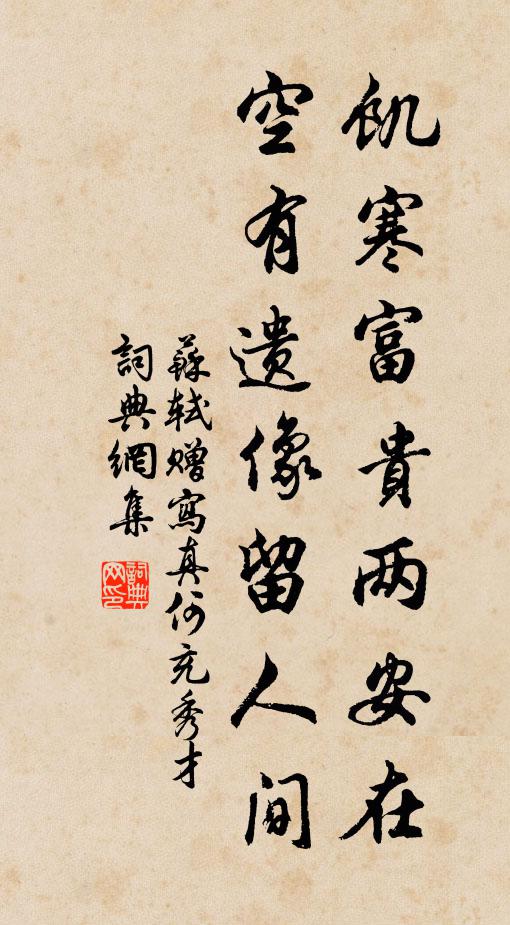 飢寒富貴两安在
空有遗像留人间
蘇轼赠寫真何充秀才
詞典網集
詞典网印